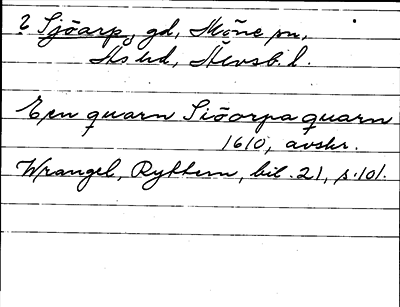 ? Sjöarp, gd, Möne sn,
Ås hd, Älvsb. l.
En quarn Siöorpa quarn
1610, avskr.
Wrangel, Ryttern, bil. 21, s. 101.